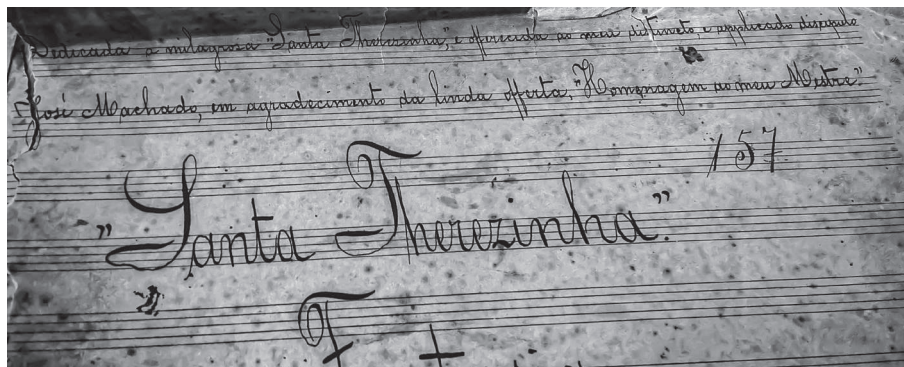 Dedicada a milagrosa "Santa Therezinha", e offerecida ao meu distincto e applicado discipulo
José Machado, em agradecimento da linda offerta, "Homenagem ao meu Mestre".
157
"Santa Therezinha".